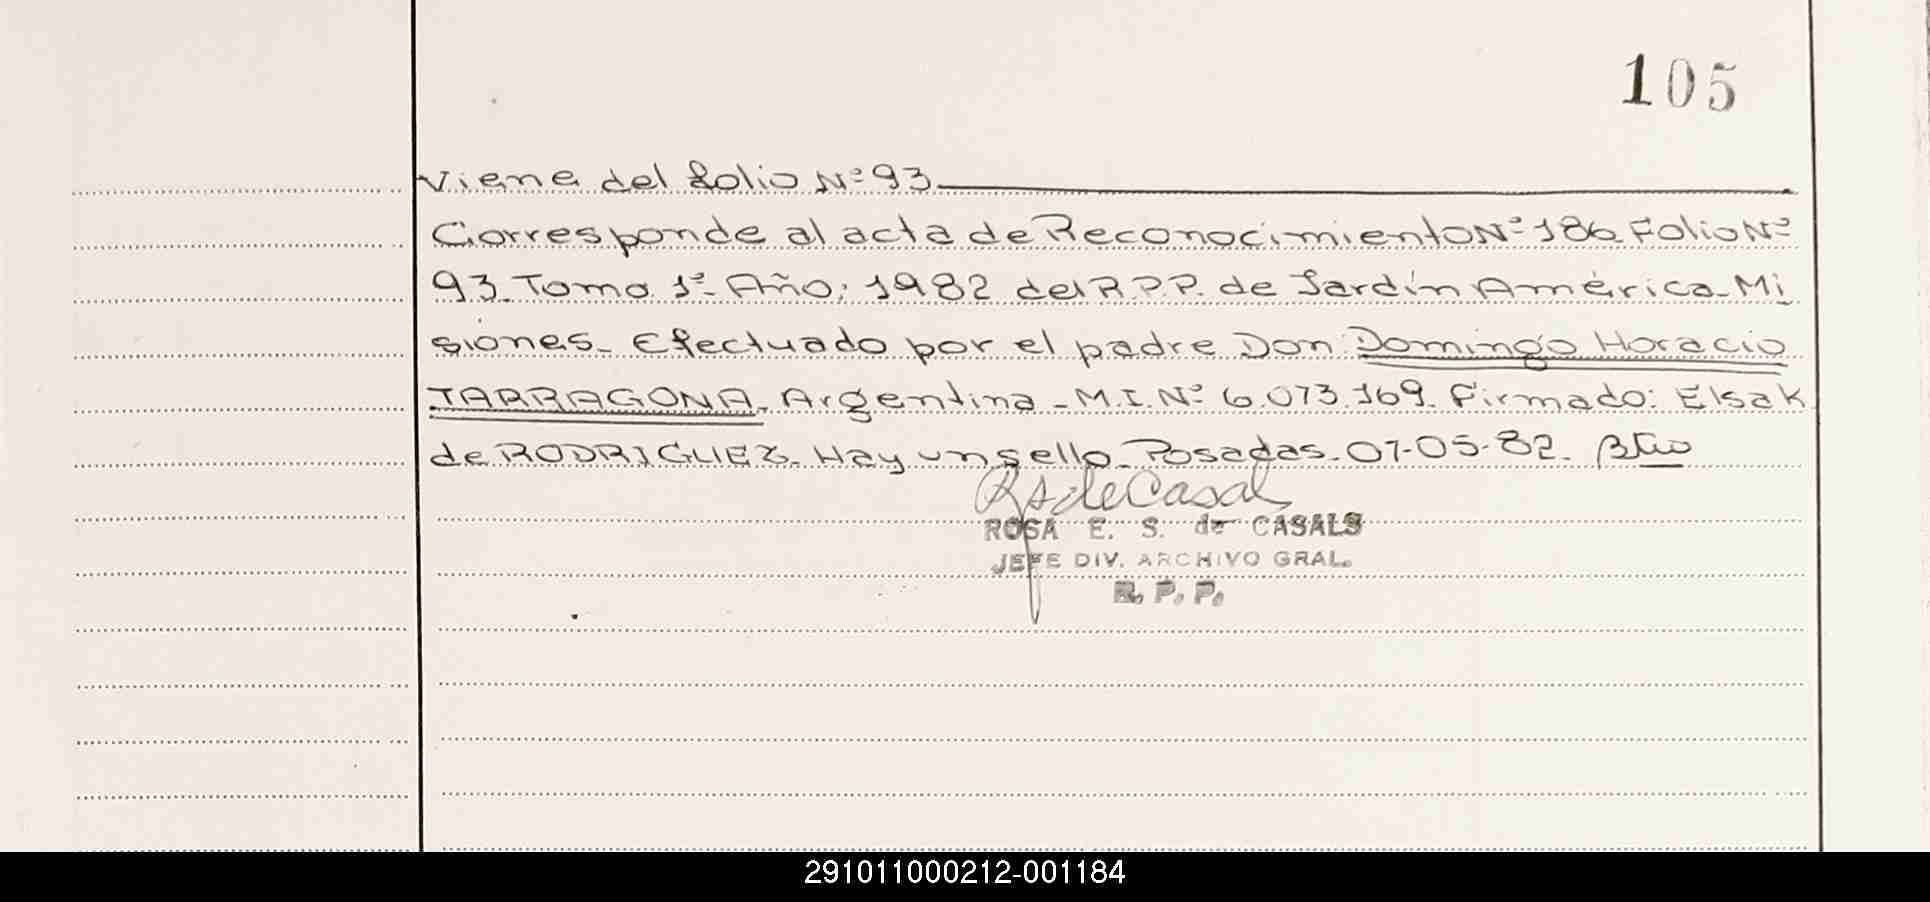 105
Viene del folio Nº 93
Corresponde al acta de Reconocimiento Nº 186. Folio Nº
93. Tomo 1º. Año: 1982 del R.P.P. de Jardín América. Mi
siones. Efectuado por el padre Don Domingo Horacio
TARRAGONA. Argentina - M.I. Nº 6.073.169. Firmado: Elsa K
de RODRIGUEZ. Hay un sello. Posadas. 07-05-82.
RS de Casal
ROSA E. S. de CASALS
JEFE DIV. ARCHIVO GRAL.
R. P. P.
291011000212-001184